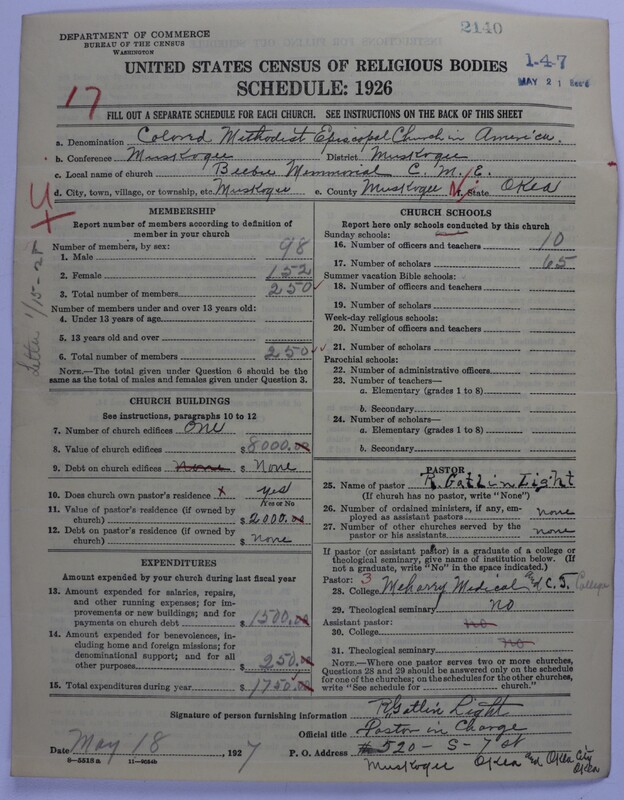 2140
DEPARTMENT OF COMMERCE
BUREAU OF THE CENSUS
WASHINGTON
1-4-7
MAY 21 Rec'd
UNITED STATES CENSUS OF RELIGIOUS BODIES
SCHEDULE: 1926
17
FILL OUT A SEPARATE SCHEDULE FOR EACH CHURCH. SEE INSTRUCTIONS ON THE BACK OF THIS SHEET
a. Denomination Colored Methodist Episcopal Church in America
b. Conference Muskogee District Muskogee
c. Local name of church Beebe Memmorial C. M. E.
d. City, town, village, or township, etc. Muskogee e. County Muskogee f. State Okla
Letter 1/15-28
MEMBERSHIP
Report number of members according to definition of member in your church
Number of members, by sex:
1. Male 98
2. Female 152
3. Total number of members 250
Number of members under and over 13 years old:
4. Under 13 years of age
5. 13 years old and over
6. Total number of members 250
NOTE.—The total given under Question 6 should be the same as the total of males and females given under Question 3.
CHURCH BUILDINGS
See instructions, paragraphs 10 to 12
7. Number of church edifices One
8. Value of church edifices $8000.00
9. Debt on church edifices None $ None
10. Does church own pastor's residence yes
Yes or No
11. Value of pastor's residence (if owned by church) $2000.00
12. Debt on pastor's residence (if owned by church) $ None
EXPENDITURES
Amount expended by your church during last fiscal year
13. Amount expended for salaries, repairs, and other running expenses; for improvements or new buildings; and for payments on church debt $1500.00
14. Amount expended for benevolences, including home and foreign missions; for denominational support; and for all other purposes 250.00
15. Total expenditures during year $1750.00
CHURCH SCHOOLS
Report here only schools conducted by this church
Sunday schools:
16. Number of officers and teachers 10
17. Number of scholars 65
Summer vacation Bible schools:
18. Number of officers and teachers
19. Number of scholars
Week-day religious schools:
20. Number of officers and teachers
21. Number of scholars
Parochial schools:
22. Number of administrative officers
23. Number of teachers—
a. Elementary (grades 1 to 8)
b. Secondary
24. Number of scholars—
a. Elementary (grades 1 to 8)
b. Secondary
PASTOR
25. Name of pastor R. Gatlin Light
(If church has no pastor, write "None")
26. Number of ordained ministers, if any, employed as assistant pastors none
27. Number of other churches served by the pastor or his assistants none
If pastor (or assistant pastor) is a graduate of a college or theological seminary, give name of institution below. (If not a graduate, write "No" in the space indicated.)
Pastor: 3
28. College Meharry Medical and C. I. College
29. Theological seminary no
Assistant pastor:
30. College no
31. Theological seminary no
NOTE.—Where one pastor serves two or more churches, Questions 28 and 29 should be answered only on the schedule for one of the churches; on the schedules for the other churches, write "See schedule for church."
Signature of person furnishing information R Gatlin Light
Official title Pastor in Charge
Date May 18, 1927 P. O. Address #520-S-7 st
8-5518a 11-9054b Muskogee Okla and Okla City Okla